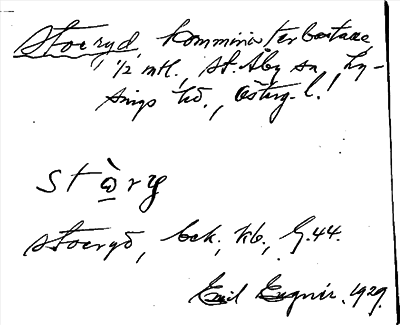 Stoeryd, komministerbostaae
1/2 mtl., St. Åby sn, Ly-
sings hd., Österg. l.
stὼry
stoeryd, bek., kb., G. 44.
Emil Eugnir. 1929.